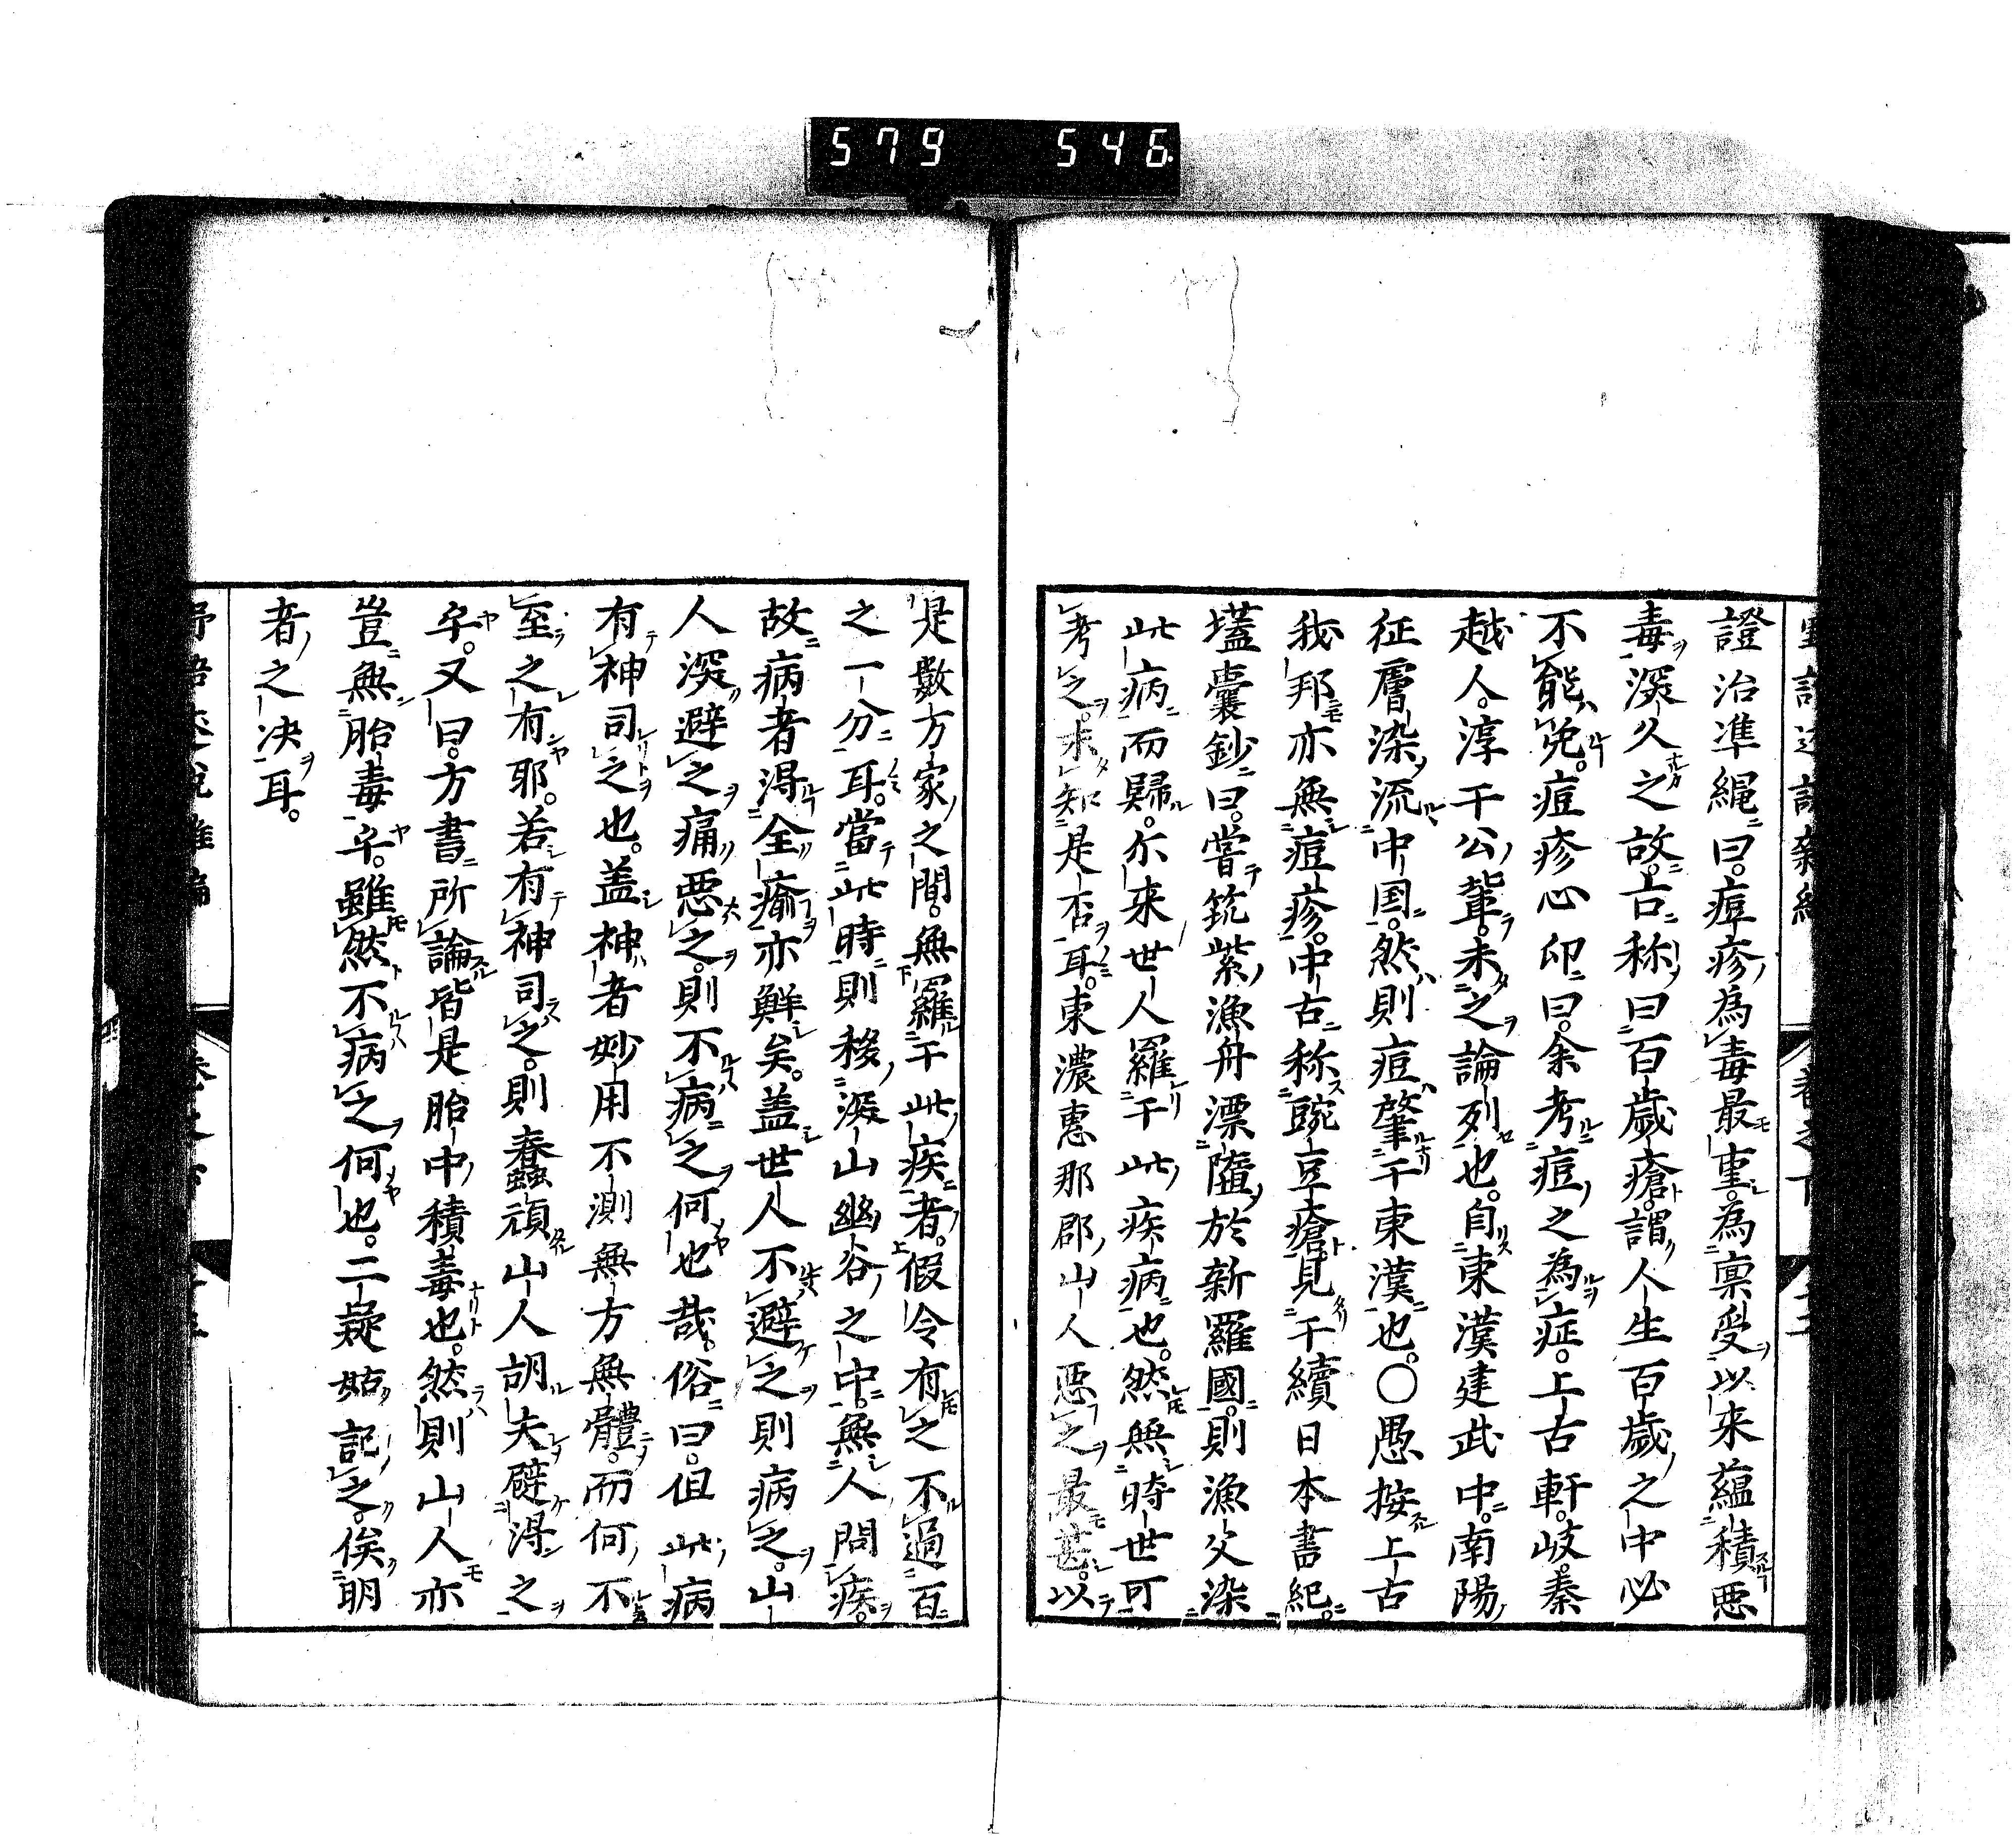 579 546
證治準繩曰。痘疹為毒最重。為稟受以来蘊積悪
毒深久之故。古称曰百歳瘡。謂人生百歳之中必
不能免。痘疹心印曰。余考痘之為症。上古軒。岐。秦
越人。淳于公輩。未之論列也。自東漢建武中。南陽
征虜染流中国。然則痘肇于東漢也。〇愚按上古
我邦亦無痘疹。中古称豌豆瘡見于續日本書紀。
壒囊鈔曰。嘗筑紫漁舟漂蕩於新羅國。則漁父染
此病而歸。尓来世人罹于此疾病也。然無時世可
考之。未知是否耳。東濃恵那郡山人悪之最甚。以
是數方家之間。無羅于此疾者。假令有之不過百
之一分耳。當此時則移深山幽谷之中。無人問疾。
故病者得全瘉亦鮮矣。蓋世人不避之則病之。山
人深避之痛悪之。則不病之何也哉。俗曰。但此病
有神司之也。蓋神者妙用不測無方無體。而何不
至之有耶。若有神司之。則蠢頑山人胡夫避得之
乎。又曰。方書所論皆是胎中積毒也。然則山人亦
豈無胎毒乎。雖然不病之何也。二疑姑記之。俟明
者之决耳。